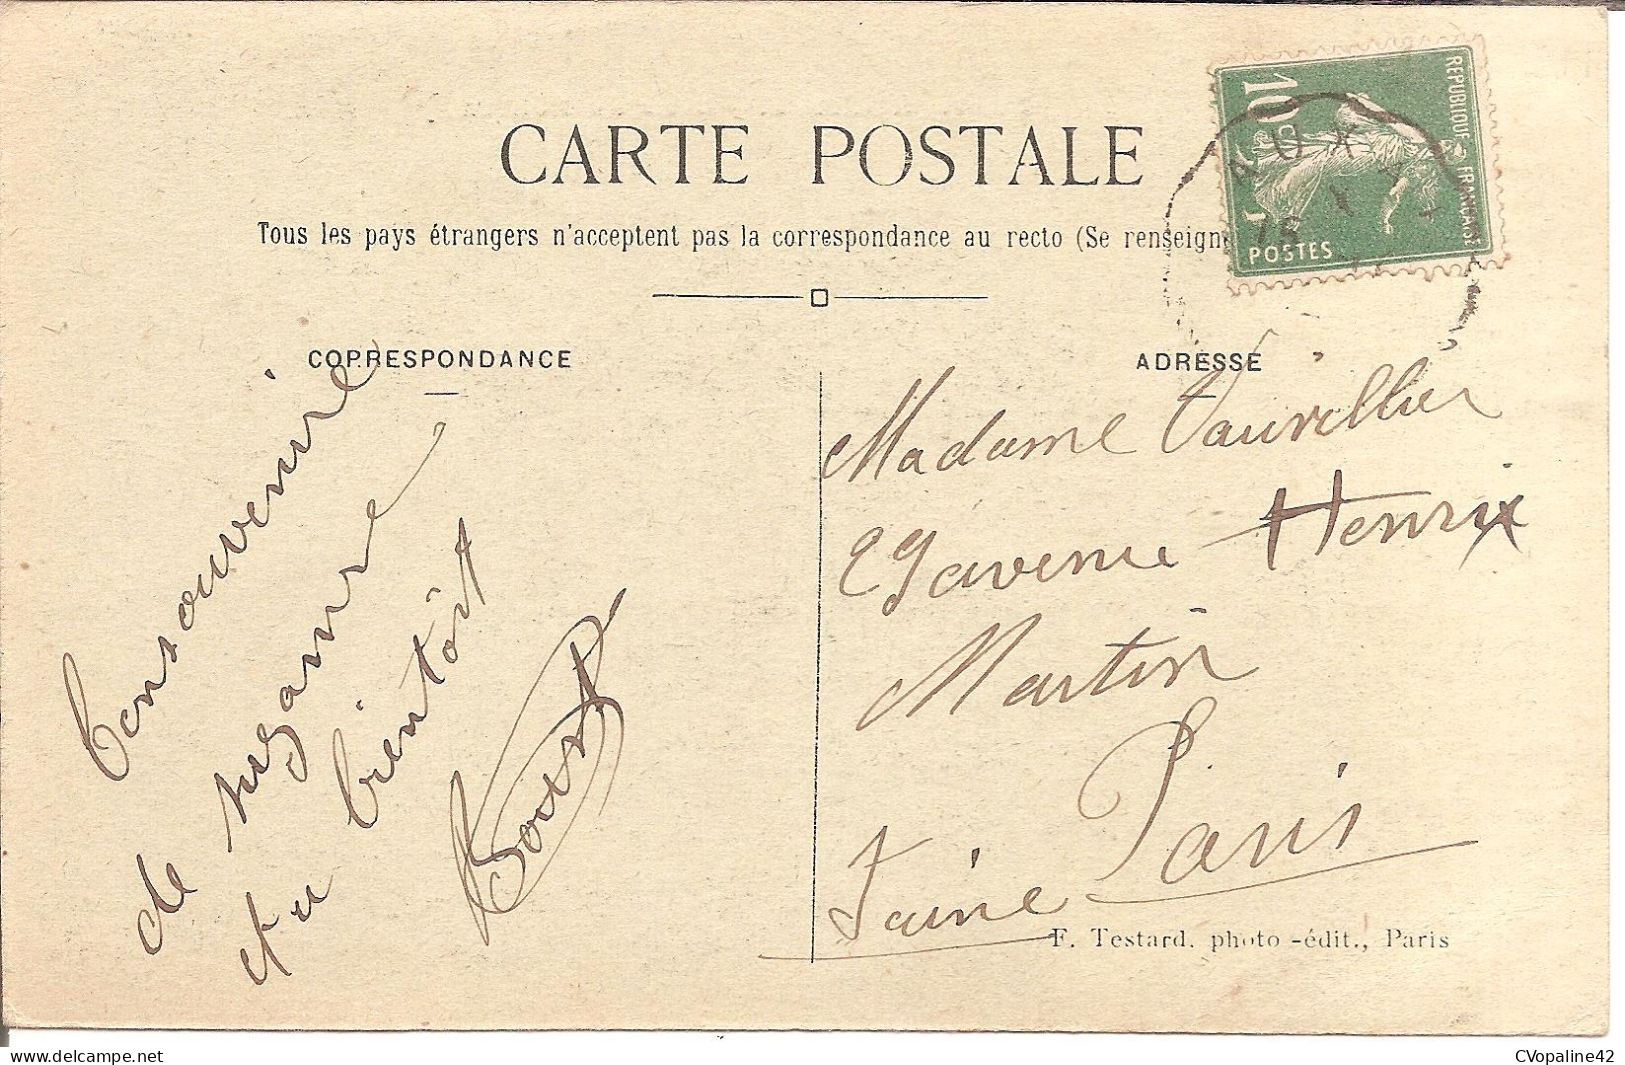 CARTE POSTALE
Tous les pays étrangers n'acceptent pas la correspondance au recto (Se renseign
REPUBLIQUE FRANÇAISE
10c
POSTES
CORRESPONDANCE
ADRESSE
bonsouvenire
de suzanne
et a bientôt
Madame Vauvillier
29 avenue Henrix
Martin
Paris
Saine
F. Testard, photo-édit., Paris
CVopaline42